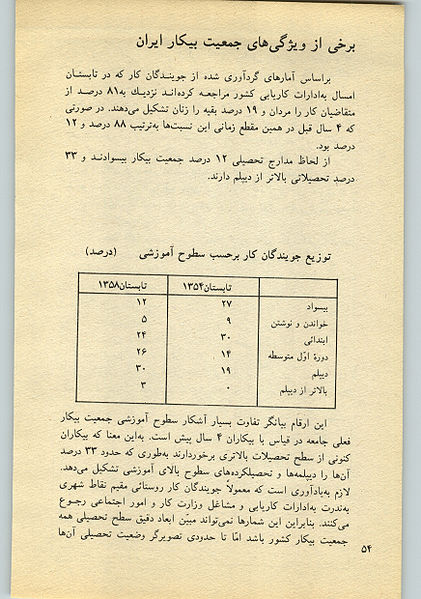 برخی از ویژگی‌های جمعیت بیکار ایران
براساس آمارهای گردآوری شده از جویندگان کار که در تابستان
امسال به‌ادارات کاریابی کشور مراجعه کرده‌اند نزدیك به۸۱ درصد از
متقاضیان کار را مردان و ۱۹ درصد بقیه را زنان تشکیل می‌دهند. در صورتی
که ۴ سال قبل در همین مقطع زمانی این نسبت‌ها به‌ترتیب ۸۸ درصد و ۱۲
درصد بود.
از لحاظ مدارج تحصیلی ۱۲ درصد جمعیت بیکار بیسوادند و ۳۳
درصد تحصیلاتی بالاتر از دیپلم دارند.
توزیع جویندگان کار برحسب سطوح آموزشی (درصد)
تابستان۱۳۵۴ تابستان۱۳۵۸
بیسواد ۲۷ ۱۲
خواندن و نوشتن ۹ ۵
ابتدائی ۳۰ ۲۴
دورهٔ اوّل متوسطه ۱۴ ۲۶
دیپلم ۱۹ ۳۰
بالاتر از دیپلم ۰ ۳
این ارقام بیانگر تفاوت بسیار آشکار سطوح آموزشی جمعیت بیکار
فعلی جامعه در قیاس با بیکاران ۴ سال پیش است. به‌این معنا که بیکاران
کنونی از سطح تحصیلات بالاتری برخوردارند به‌طوری که حدود ۳۳ درصد
آن‌ها را دیپلمه‌ها و تحصیلکرده‌های سطوح بالای آموزشی تشکیل می‌دهد.
لازم به‌یادآوری است که معمولاً جویندگان کار روستائی مقیم نقاط شهری
به‌ندرت به‌ادارات کاریابی و مشاغل وزارت کار و امور اجتماعی رجوع
می‌کنند. بنابراین این شمارها نمی‌تواند مبیّن ابعاد دقیق سطح تحصیلی همه
جمعیت بیکار کشور باشد امّا تا حدودی تصویرگر وضعیت تحصیلی آن‌ها
۵۴